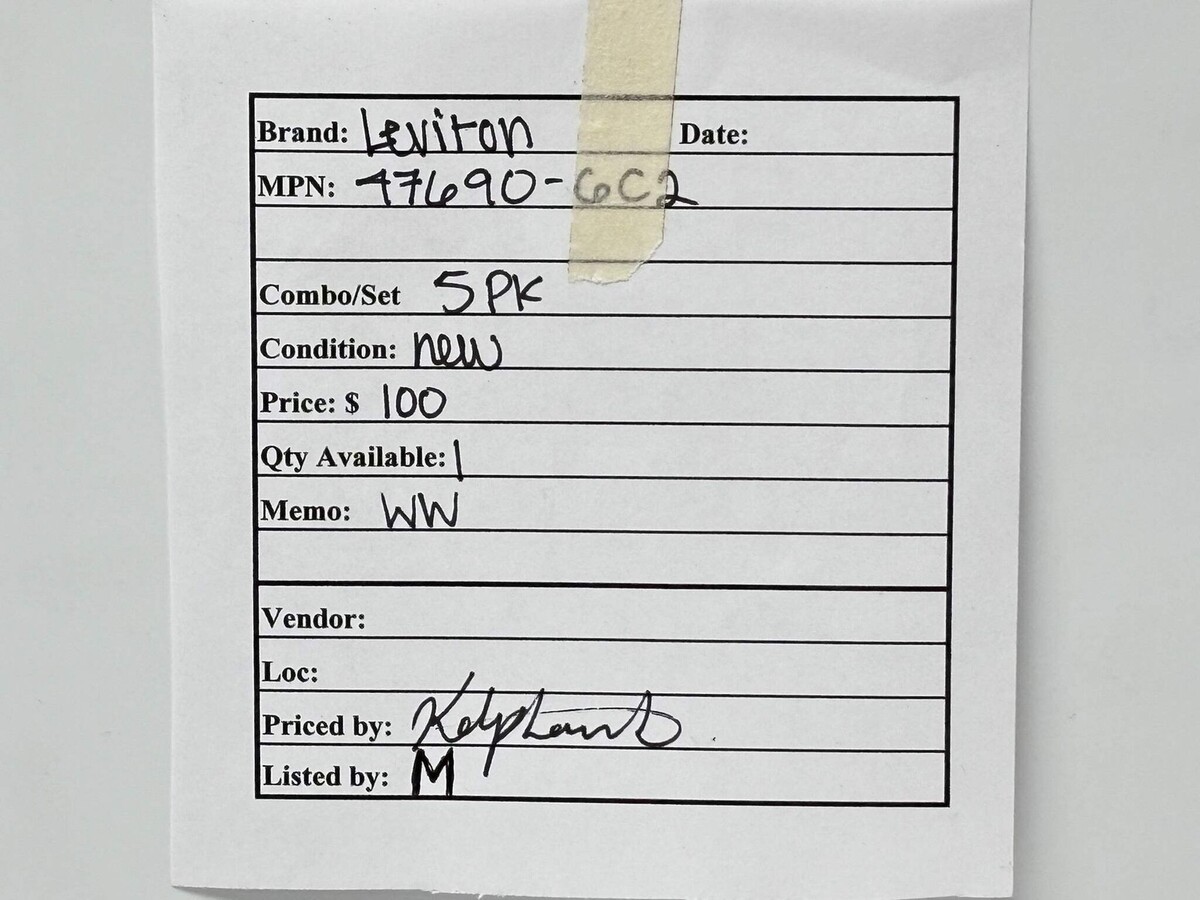 Brand: Leviton Date:
MPN: 47690-6C2
Combo/Set 5 PK
Condition: new
Price: $ 100
Qty Available: 1
Memo: WW
Vendor:
Loc:
Priced by:
Listed by: M